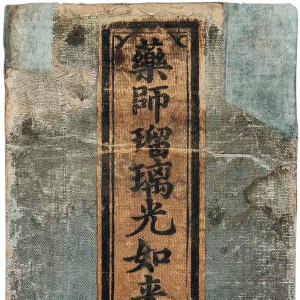 藥師瑠璃光如来